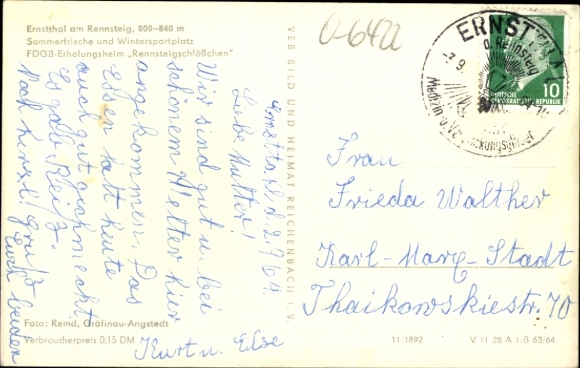 Ernstthal am Rennsteig, 800–840 m
Sommerfrische und Wintersportplatz
FDGB-Erholungsheim „Rennsteigschlößchen"
O-6422
ERNSTTHAL
a. Rennsteig
DEUTSCHE
DEMOKRATISCHE REPUBLIK
10
VEB BILD UND HEIMAT REICHENBACH I. V.
Ernstthal d. 2.9.64.
Liebe Mutter!
Wir sind gut u. bei
schönem Wetter hier
angekommen. Das
Essen hatt heute
auch gut geschmeckt
Es gab Reiß.
Noch herzl. Gruß
Euch beiden
Kurt u. Else
Frau
Frieda Walther
Karl-Marx-Stadt
Thaikowskiestr. 70
Foto: Remd, Gräfinau-Angstedt
Verbraucherpreis 0,15 DM
11/1892
V 11 28 A 1/B 63/64